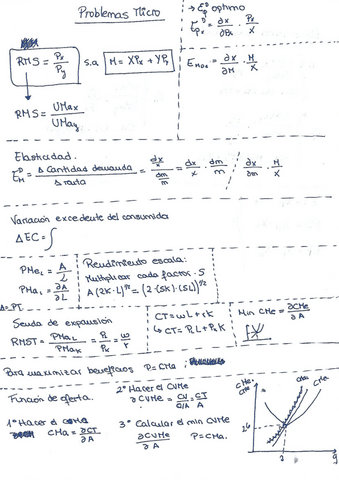 Problemas Micro
→ ε_p^D óptimo
RMS = Px/Py s.a M = XPx + YPy
E_px^D = ∂x/∂Px · Px/X
E_M,Dx = ∂x/∂M · M/X
RMS = UMax/UMay
Elasticidad.
E_M^D = Δ Cantidad demanda / Δ renta = (dx/x)/(dm/m) = dx/x · dm/m / ∂x/∂m · M/X
Variación excedente del consumida
ΔEC = ∫
PMe_L = A/L
PMa_L = ∂A/∂L
Rendimiento escala:
Multiplicar cada factor · 5
A(2K·L)^1/2 = (2·(5K)·(5L))^1/2
A=PT
Senda de expansión
RMST = PMa_L/PMa_K = P_L/P_K = w/r
CT = wL + rK
↳ CT = P_L L + P_K K
Min CMe = ∂CMe/∂A
Para maximizar beneficios P = CMa;
Función de oferta.
1º Hacer el CMa
CMa = ∂CT/∂A
2º Hacer el CVMe
∂CVMe = CV/Q/A = CT/A
3º Calcular el min CVMe
∂CVMe/∂A P = CMa.
CMa;
CMe
CMa
CMe
q